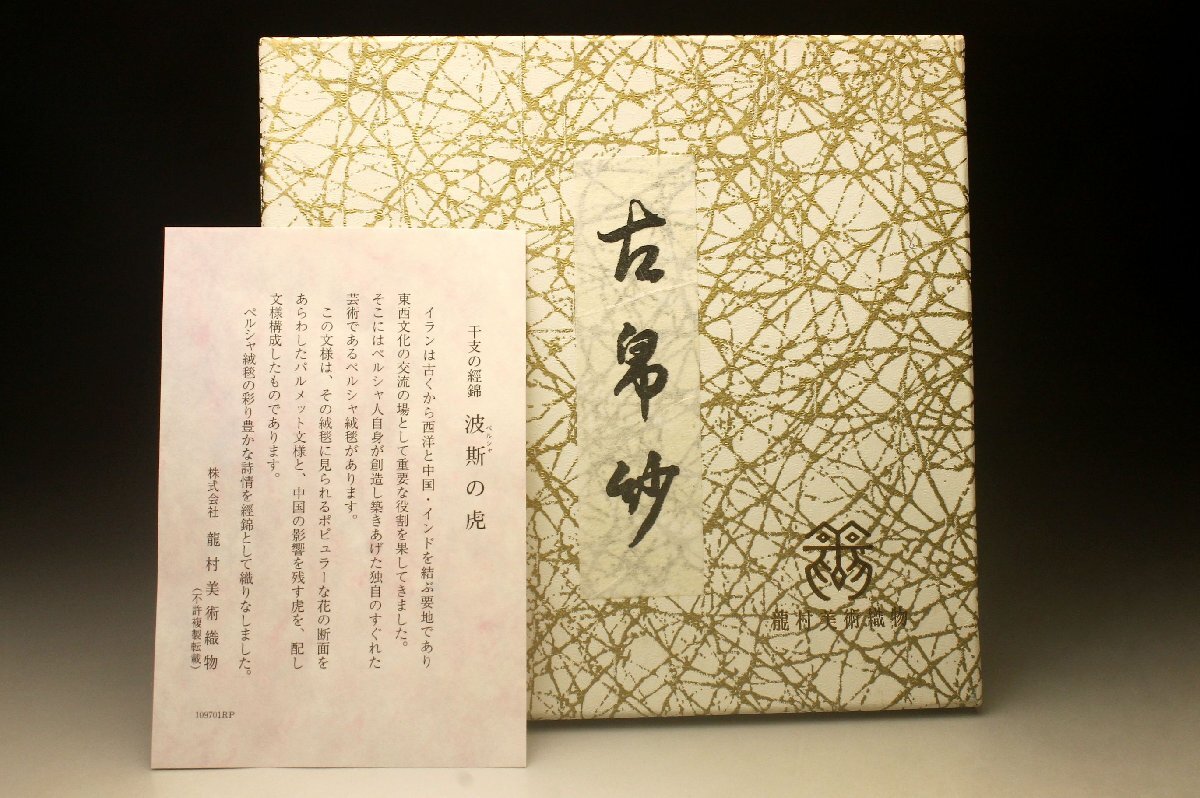 古帛紗
龍村美術織物
干支の經錦 波斯の虎
ペルシャ
イランは古くから西洋と中国・インドを結ぶ要地であり
東西文化の交流の場として重要な役割を果してきました。
そこにはペルシャ人自身が創造し築きあげた独自のすぐれた
芸術であるペルシャ絨毯があります。
この文様は、その絨毯に見られるポピュラーな花の断面を
あらわしたパルメット文様と、中国の影響を残す虎を、配し
文様構成したものであります。
ペルシャ絨毯の彩り豊かな詩情を經錦として織りなしました。
株式会社 龍村美術織物
(不許複製転載)
109701RP